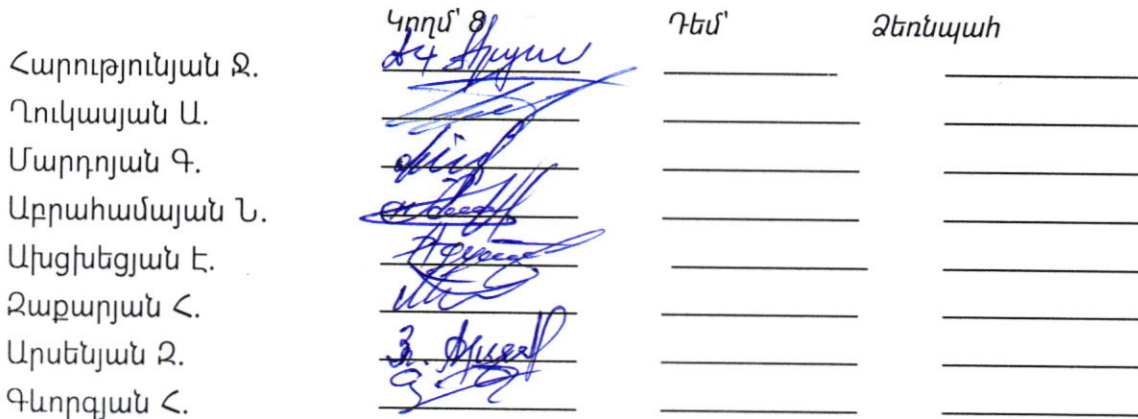 Կողմ՝ 8 Դեմ՝ Ձեռնպահ
Հարությունյան Ջ.
Ղուկասյան Ա.
Մարդոյան Գ.
Աբրահամայան Ն.
Ախցխեցյան Է.
Զաքարյան Հ.
Արսենյան Զ.
Գևորգյան Հ.